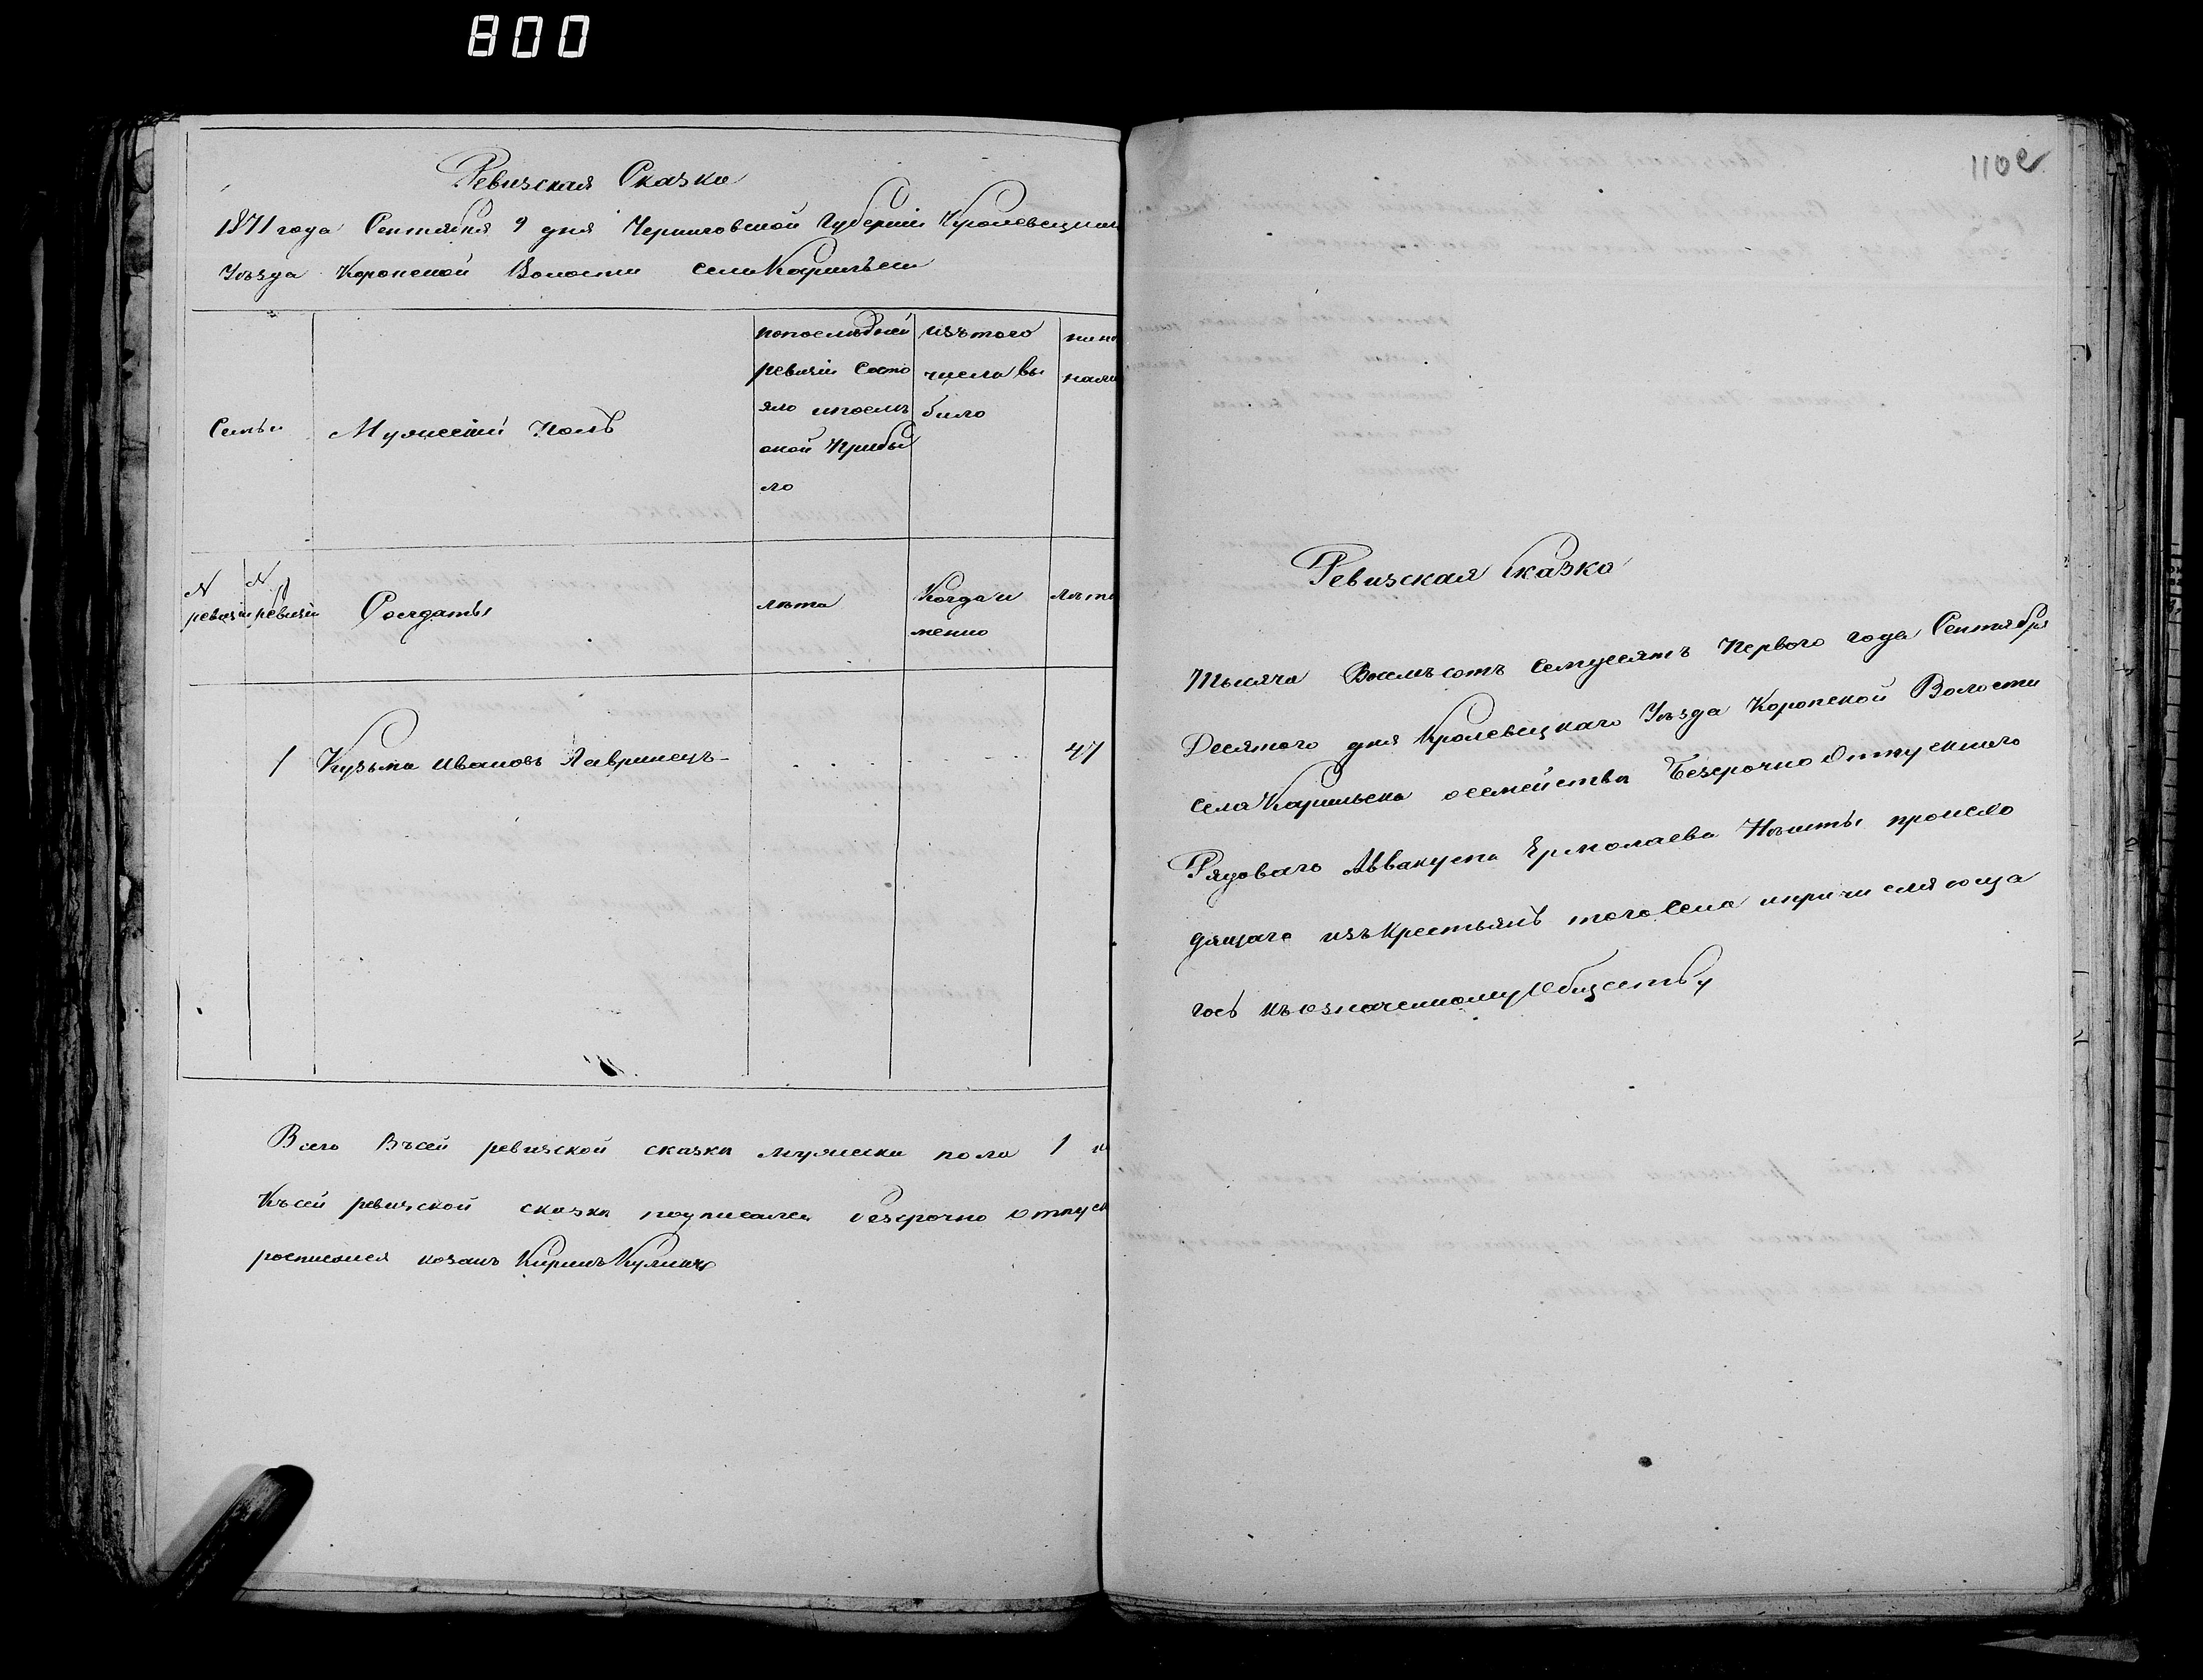 800
Ревизская Сказка
1871 года Сентября 9 дня Черниговской Губерніи Кролевецкаго
Уѣзда Коропской Волости села Карильска
Семьи
Мужескій Полъ
попослѣдней
ревизіи состо
яло и послѣ
оной Прибы
ло
изътого
числа вы
было
нали
N ревизіи
N ревизіи
Солдаты
лѣта
Когда и
менно
лѣта
1 Кузьма Ивановъ Лавринецъ 47
Всего Въсей ревизской сказки мужеска пола 1
Късей ревизской сказки подписался безсрочно отпуск
росписался козакъ Кирилъ
110
Ревизская Сказка
Тысяча Восемьсотъ Семдесятъ Первого года Сентября
Десятого дня Кролевецкаго Уѣзда Коропской Волости
села Карильска осемействѣ Безсрочно Отпускнаго
Рядоваго Аввакума Ермолаева происхо
дящаго изъ Крестьянъ того Села ипричисляюща
гось къозначенному Обществу